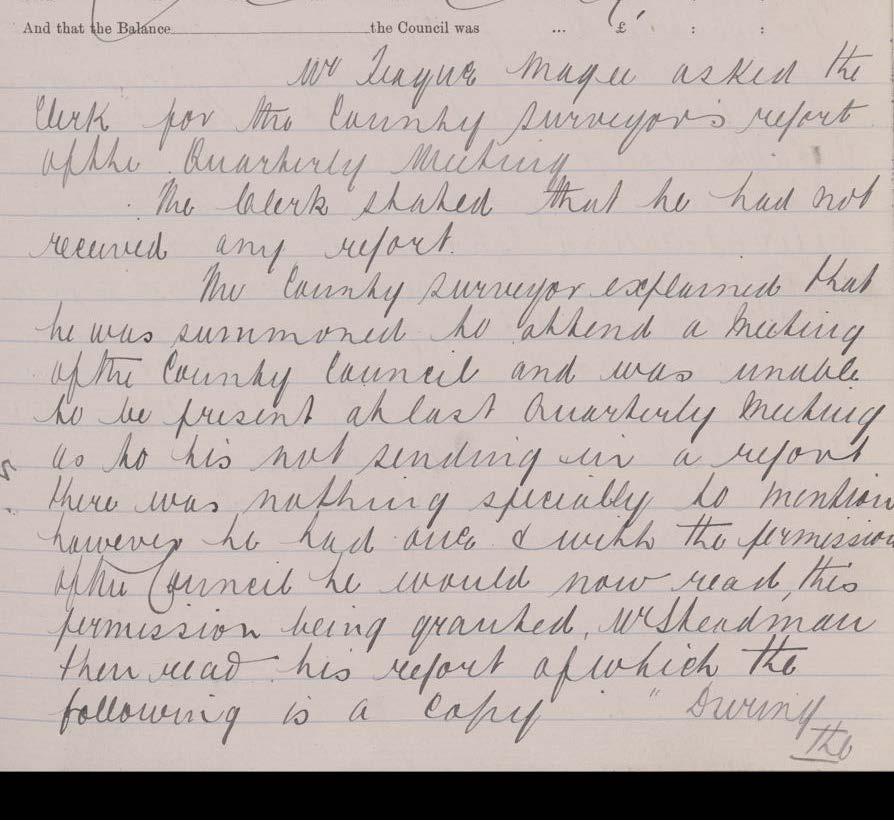 And that the Balance the Council was ... £ : :
Mr Teague Magee asked the
Clerk for the County Surveyor's report
of the Quarterly Meeting
The Clerk stated that he had not
received any report.
The County Surveyor explained that
he was summoned to attend a Meeting
of the County Council and was unable
to be present at last Quarterly Meeting
as to his not sending in a report
there was nothing specially to mention
however he had one & with the permission
of the Council he would now read, this
permission being granted, Mr Steadman
then read his report of which the
following is a Copy " During
the